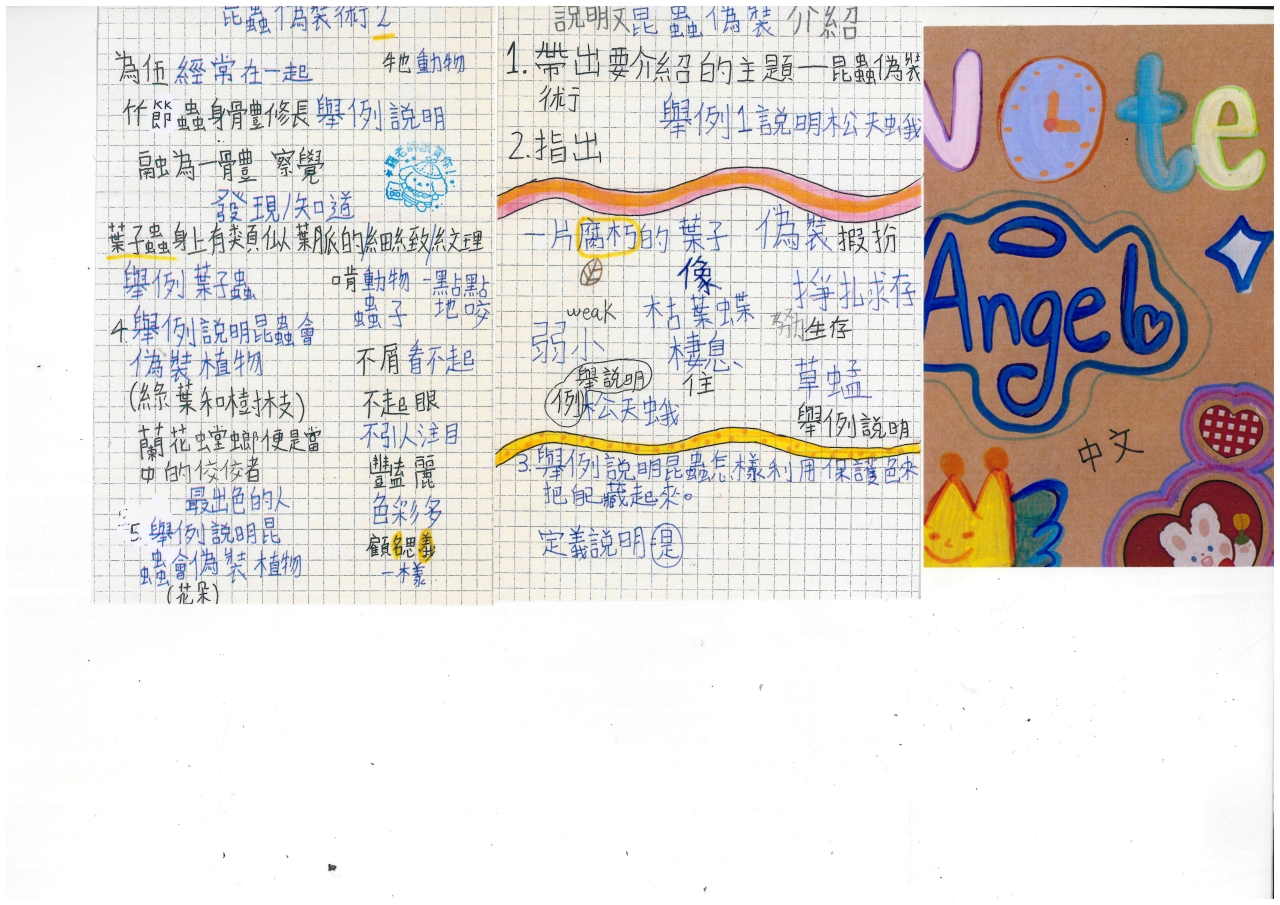 昆蟲偽裝術2
為伍 經常在一起
牠動物
竹節蟲身體修長 舉例說明
融為一體 察覺
發現/知道
葉子蟲身上有類似葉脈的細緻紋理
舉例葉子蟲
啃動物 一點點
蟲子 地咬
4.舉例說明昆蟲會
偽裝植物
(綠葉和樹枝)
不屑 看不起
不起眼
不引人注目
蘭花螳螂便是當
中的佼佼者
最出色的人
豔麗
色彩多
5.舉例說明昆
蟲會偽裝植物
(花朵)
顧名思義
一樣
說明文昆蟲偽裝 介紹
1.帶出要介紹的主題—昆蟲偽裝
術
舉例1說明松天蛾
2.指出
一片腐朽的葉子
偽裝 假扮
像
weak
弱小
枯葉蝶
棲息
住
掙扎求存
生存
草蜢
舉例說明
舉例說明
松天蛾
3.舉例說明昆蟲怎樣利用保護色來
把自己藏起來。
定義說明:是
Note
Angel
中文